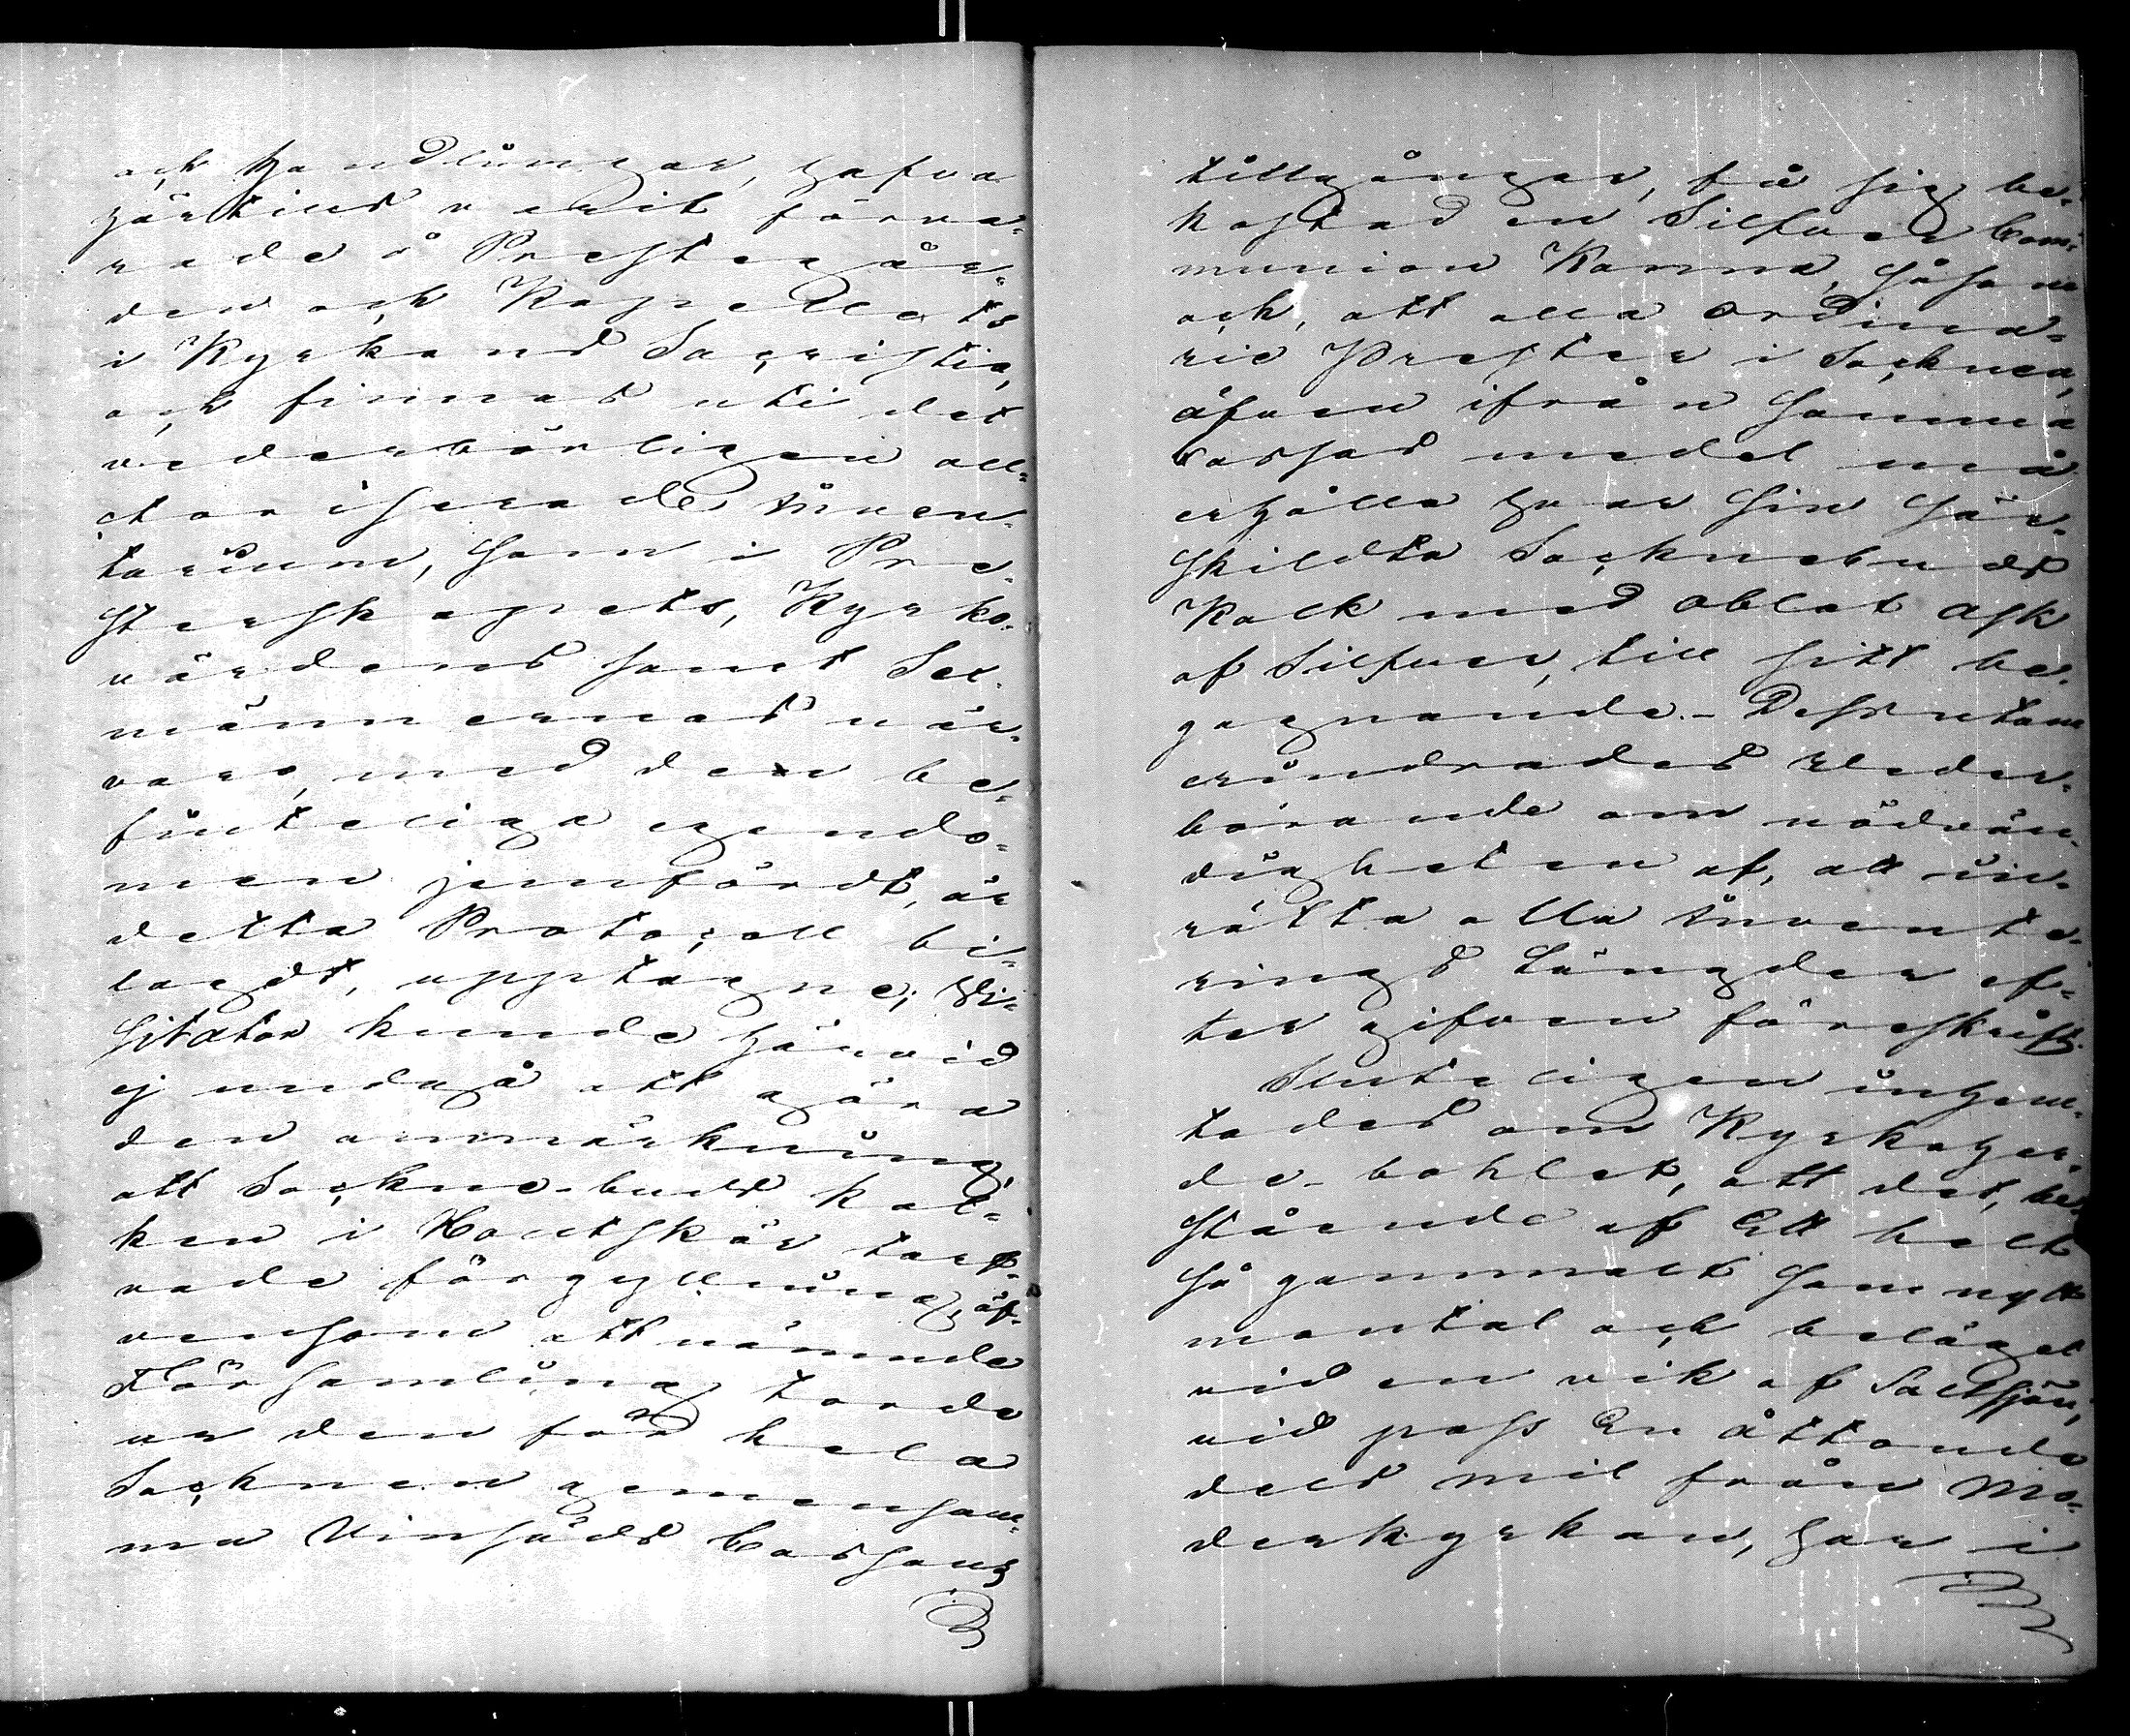 och handlingar, hafva
härtills varit förva-
rade å Prestegår-
den och Kapellets
i Kyrkans Sacristia,
och finnas uti det
vederbörligen auc-
torisserade Inven-
tarium, som i Pre-
sterskapets, Kyrko-
värdens samt Sex-
männernas när-
varo, med den be-
finteliga egendo-
men jemfördt, är
detta Protocoll bi-
lagdt, upptagne; Vi-
sitator kunde härvid
ej undgå att göra
den anmärkning,
att Sockne-buds kal-
ken i Houtskär tarf-
vade förgyllning, äf-
vensom att nämnde
Församling torde
ur den för hela
Socknen gemensam-
ma Vinsäds Cassans
tillgångar, få sig be-
kostad en Silfver Com-
munion Kanna, såsom
och, att alla ordina-
rie Prester i Socknen,
äfven ifrån samma
Cassas medel må
erhålla hvar sin sär-
skildta Socknebuds
Kalk med oblat ask
af Silfver, till sitt be-
gagnande. - Dessutom
erindrades Veder-
börande om nödvän-
digheten af, att in-
rätta alla Invente-
rings Längder ef-
ter gifven föreskrift.
Sluteligen inhem-
tades om Kyrkoher-
de-bohlet, att det, be-
stående af Ett helt
så gammalt som nytt
mantal och beläget
vid en vik af Saltsjön,
vid pass En åttonde
dels mil från Mo-
derkyrkan, har i